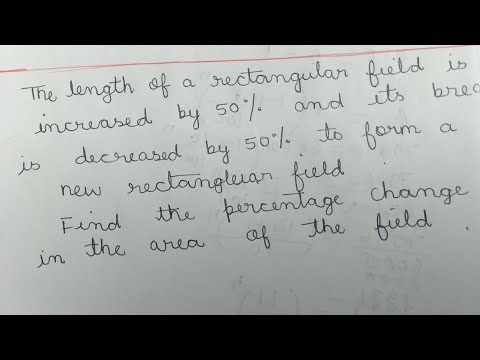 The length of a rectangular field is
increased by 50% and its brea
is decreased by 50% to form a
new rectangleuar field .
Find the percentage change
in the area of the field .